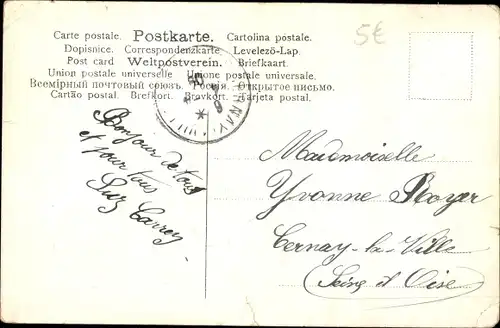 Carte postale. Postkarte. Cartolina postale.
Dopisnice. Correspondenzkarte. Levelezö-Lap.
Post card Weltpostverein. Briefkaart.
Union postale universelle Unione postale universale.
Всемірный почтовый союзъ. Россія. Открытое письмо.
Cartão postal. Brefkort. Brevkort. Tarjeta postal.
5€
Bonjour de tous
et pour tous
Mademoiselle
Yvonne Royer
Cernay-la-Ville
(Seine et Oise)